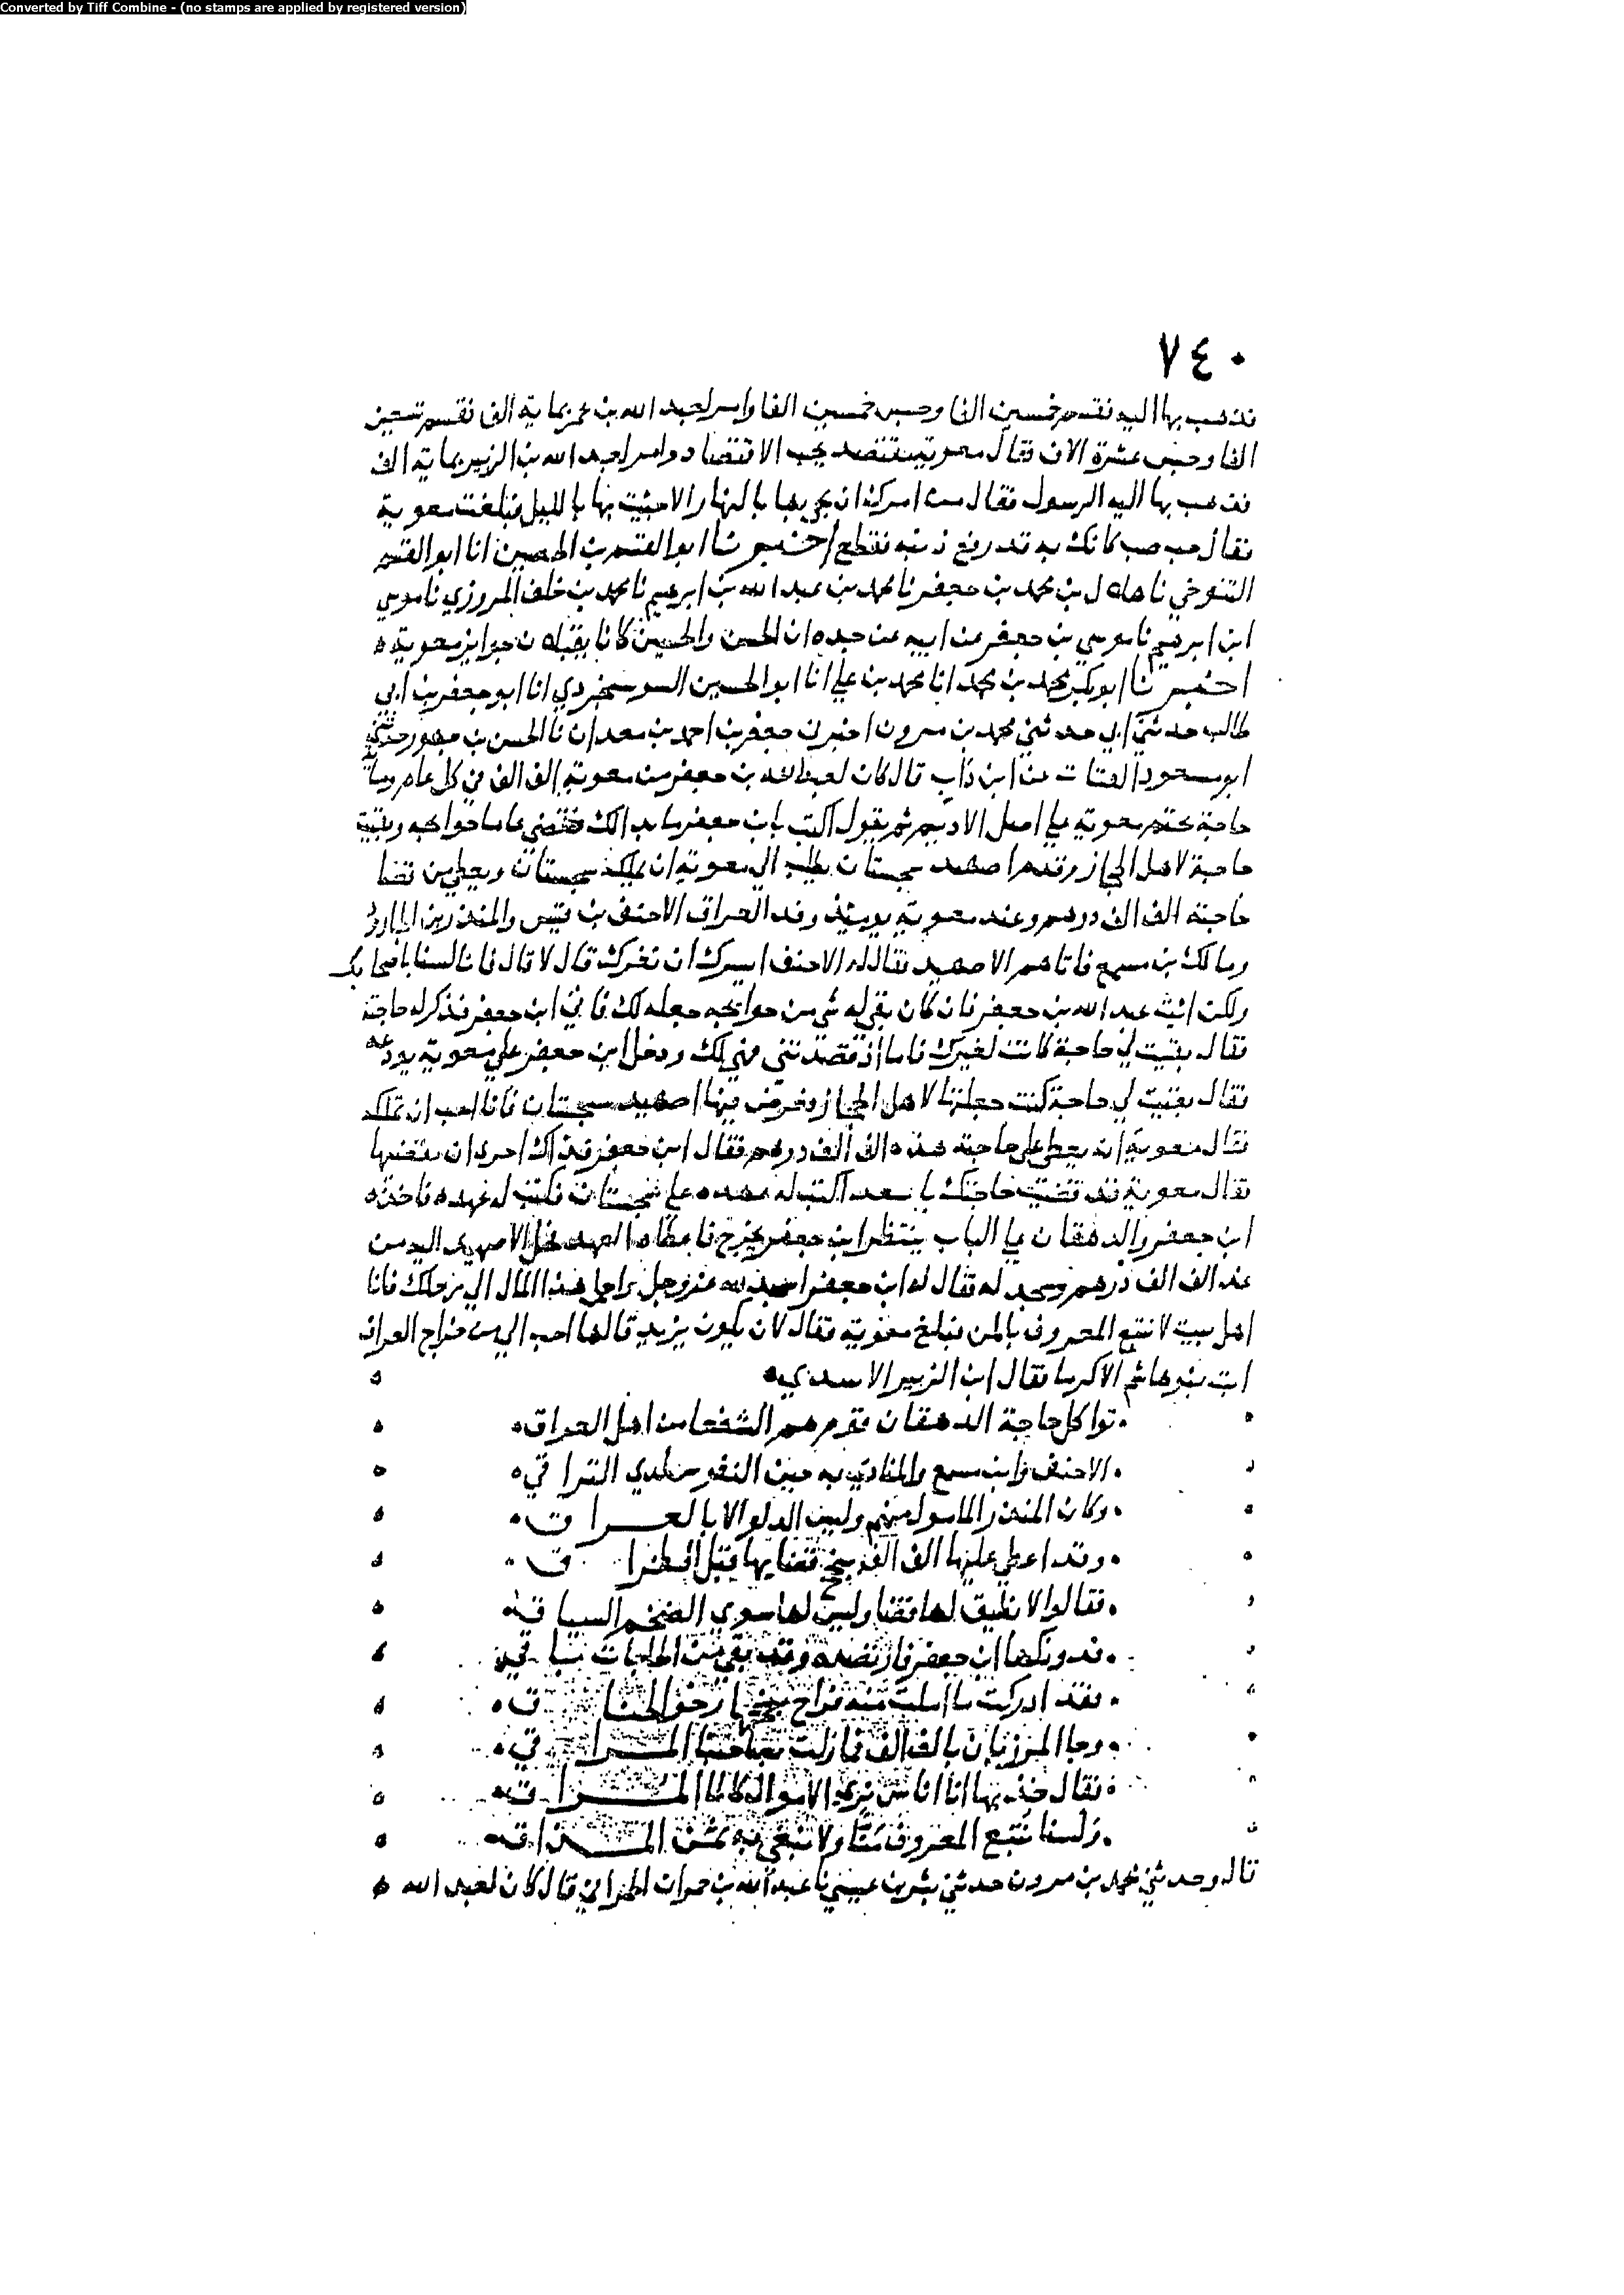 Converted by Tiff Combine - (no stamps are applied by registered version)
٧٤٠
فذهب بها اليه فقسم خمسين الفا وحبس خمسين الفا وامر لعبد الله بن عمر بماية الف فقسم تسعين
الفا وحبس عشرة الاف فقال معوية مقتصد يحب الاقتصاد وامر لعبد الله بن الزبير بماية الف
فذهب بها اليه الرسول فقال من امرك ان تجي بها بالنهار الا جيت بها بالليل فبلغت معوية
فقال خب ضب كانك به قد رفع ذنبه فقطع اخبرنا ابو القسم بن الحصين انا ابو القسم
التنوخي نا هلال بن محمد بن جعفر نا محمد بن عبد الله بن ابرهيم نا محمد بن خلف المروزي نا موسي
ابن ابرهيم نا موسي بن جعفر عن ابيه عن جده ان الحسن والحسين كانا يقبلان جوايز معوية ه
اخبرنا ابو بكر محمد بن محمد انا محمد بن علي انا ابو الحسين السوسنجردي انا ابو جعفر بن ابي
طالب حدثني ابي حدثني محمد بن مرون اخبرني جعفر بن احمد بن معدان نا الحسن بن جهور
ابو مسعود القتات عن ابن داب قال كان لعبد الله بن جعفر من معوية الف الف في كل عام وماية
حاجة يختم معوية علي اصل الاديم ثم يقول اكتب يا بن جعفر ما بدا لك فقضي عاما حوايجه وبقيت
حاجة لاهل الحجاز وقدم اصهبد سجستان يطلب الي معوية ان يملكه سجستان ويعطي من قضا
حاجته الف الف درهم وعند معوية يوميذ وفد العراق الاحنف بن قيس والمنذر بن الجارود
ومالك بن مسمع فاتاهم الاصهبد فقال له الاحنف ايسرك ان نغرك قال لا قال فانا لسنا باصحابك
ولكن ايت عبد الله بن جعفر فان كان بقي له شي من حوايجه جعله لك فاتي ابن جعفر فذكر له حاجته
فقال بقيت لي حاجة كانت لغيرك فاما اذ قصدتني فهي لك ودخل ابن جعفر علي معوية يودعه
فقال بقيت لي حاجة كنت جعلتها لاهل الحجاز وعرض فيها اصهبد سجستان فانا احب ان تملكه
فقال معوية انه يعطي علي حاجته هذه الف الف درهم فقال ابن جعفر فذاك احري ان تقضيها
فقال معوية قد قضيت حاجتك يا سعد اكتب له عهده علي سجستان فكتب له عهده فاخذه
ابن جعفر والدهقان علي الباب ينتظر ابن جعفر يخرج فاعطاه العهد فحمل الاصهبد اليه من
غد الف الف درهم وسجد له فقال له ابن جعفر اسجد لله عز وجل واحمل هذا المال الي رحلك فانا
اهل بيت لا نتبع المعروف بالمن فبلغ معوية فقال لان يكون يزيد قالها احب الي من خراج العراق
ابت بنو هاشم الا كرما فقال ابن الزبير الاسدي ه
تواكل حاجة الدهقان قوم هم الشفعا من اهل العراق
الاحنف وابن مسمع والمنادي به حين النفوس لدي التراقي
وكان المنذر المامول منهم وليس الدلو الا بالعراق
وقد اعطي عليها الف الف بنجح قضايها قبل الفراق
فقالوا لا نطيق لها قضا وليس لها سوي الضخم السياق
فدونكها ابن جعفر فارتصدها وقد بقي من الحاجات باقي
فقد ادركت ما املت منه فراح بنجحها رخو الخناق
وجا المرزبان بالف الف فما زلت بصاحبنا المراقي
فقال خذ بها انا اناس نري الاموال كالما المراق
ولسنا نتبع المعروف منا ولا نبغي به ثمن المذاق
قال وحدثني محمد بن مرون حدثني بشر بن عيسي نا عبد الله بن حمران الحمراني قال كان لعبد الله